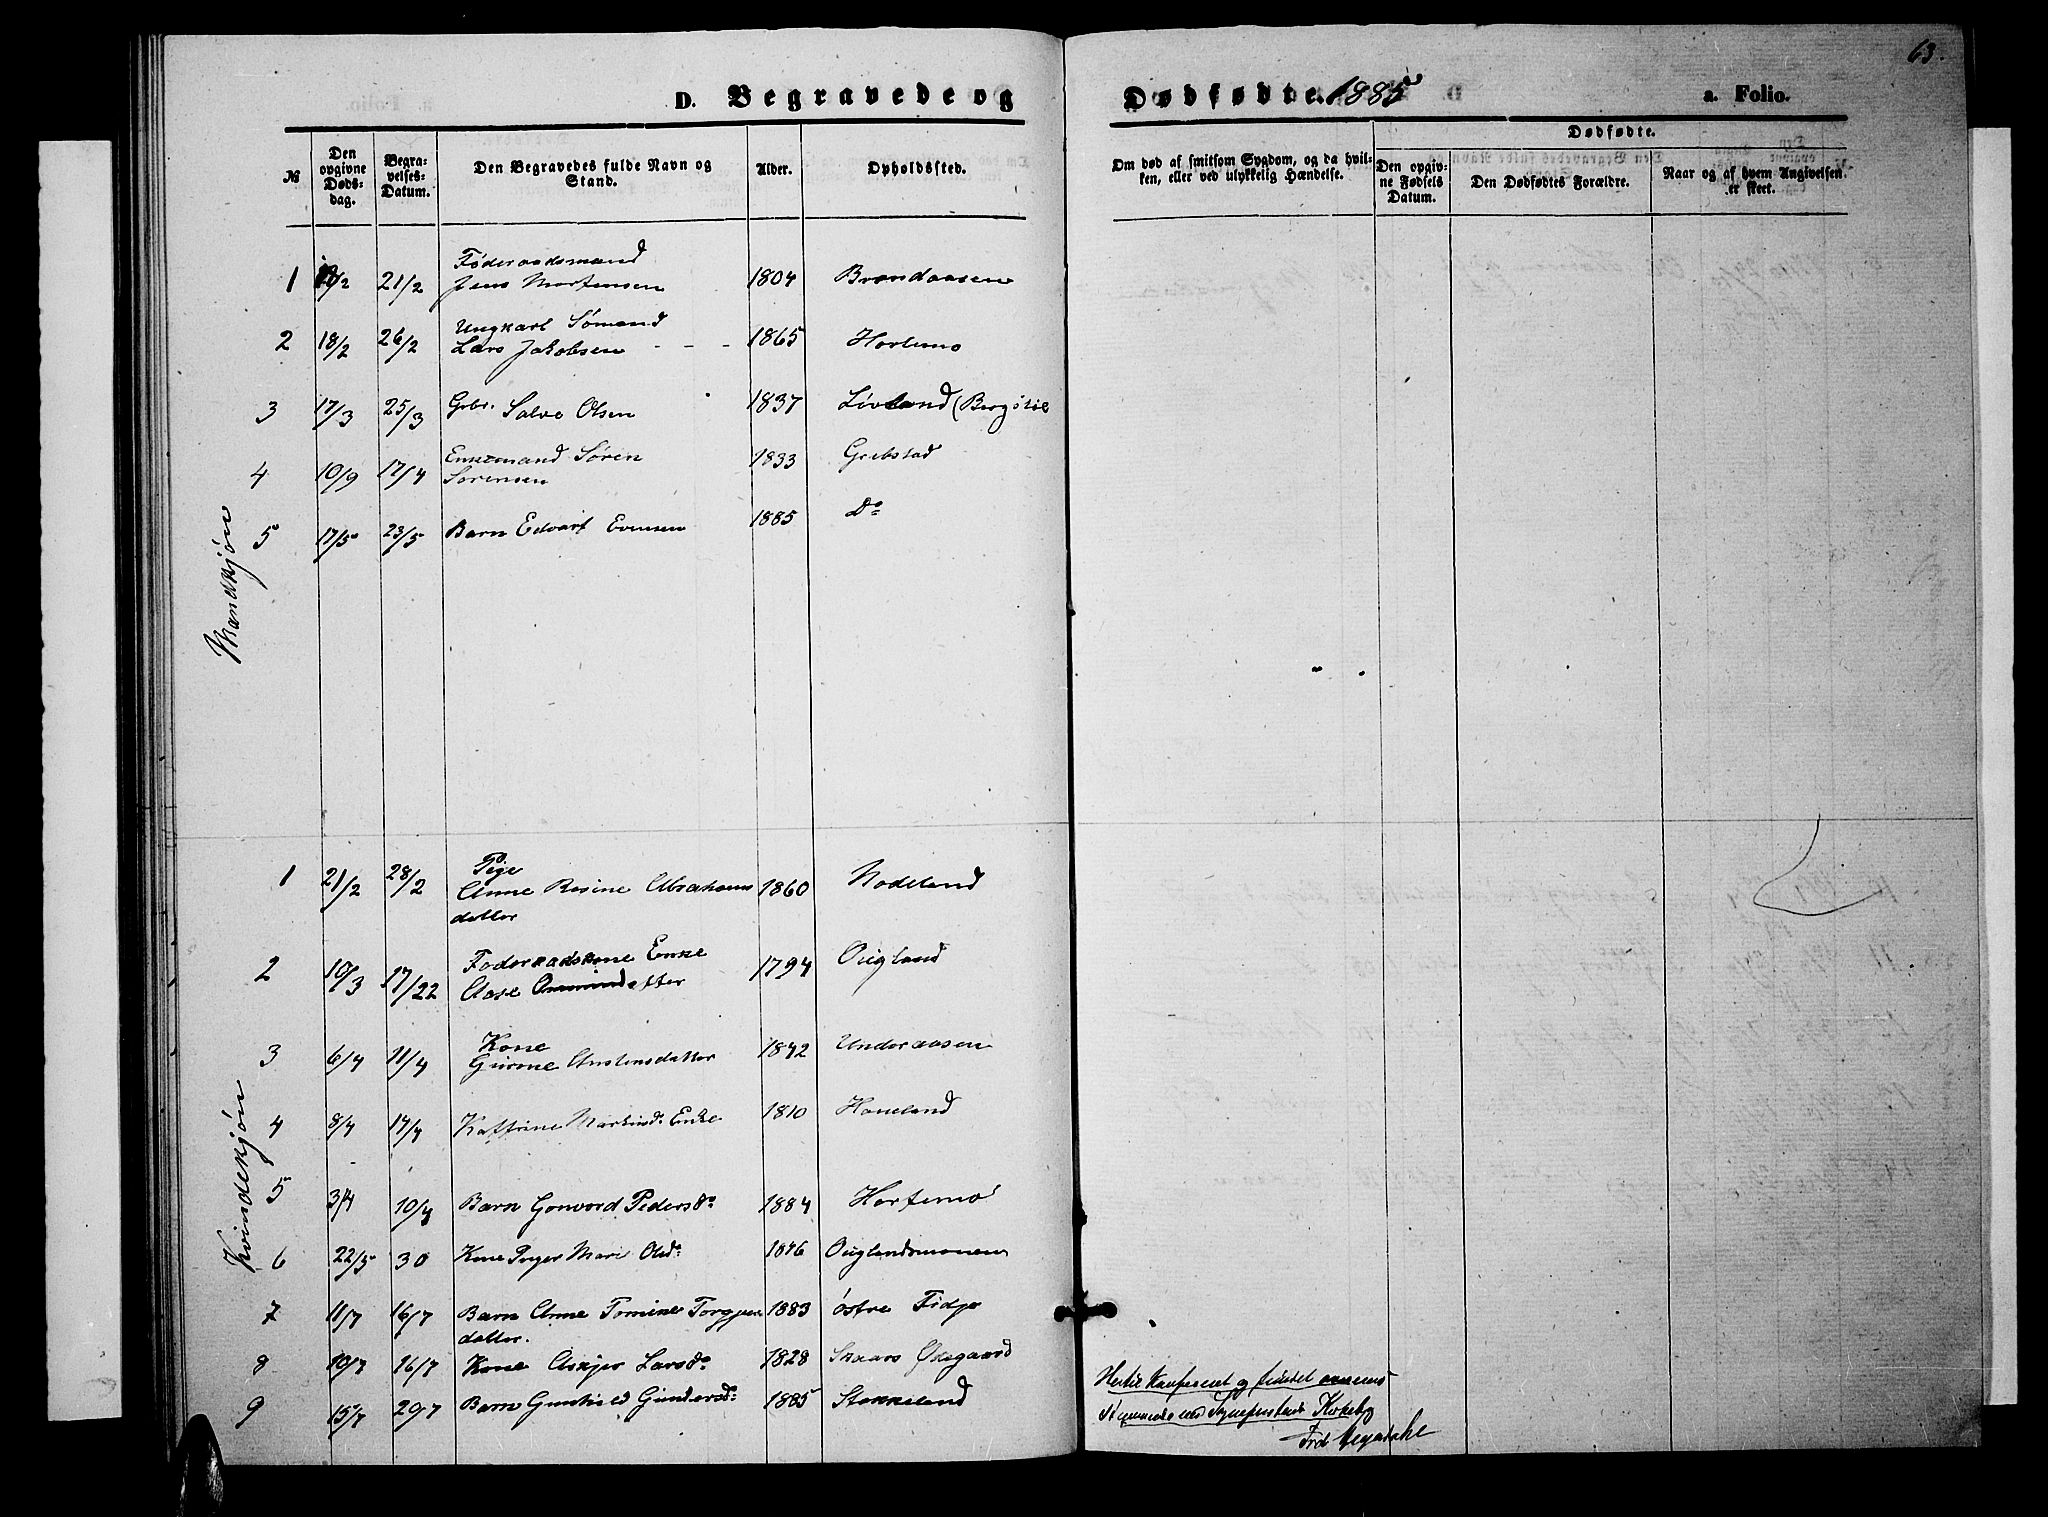 63.
D. Begravede og Dødfødte. 1885
a. Folio.
№
Den opgivne Døds-dag.
Begra-velses-Datum.
Den Begravedes fulde Navn og Stand.
Alder.
Opholdssted.
Om død af smitsom Sygdom, og da hvil-ken, eller ved ulykkelig Hændelse.
Dødfødte.
Den opgiv-ne Fødsels Datum.
Den Dødfødtes Forældre.
Naar og af hvem Angivelsen er skeet.
Mandkjøn
Føderaadsmand
1 21/2 Jens Mortensen 1804 Brandaasen
Ungkarl Sømand
2 18/2 26/2 Lars Jakobsen - - - 1865 Hortemo
3 17/3 25/3 Gbr. Salve Olsen 1837 Livland (Bergstøl
Enkemand Søren
4 10/9 17/4 Sørensen 1833 Grebstad
5 17/5 23/5 Barn Edvart Evensen 1885 Do
Kvindekjøn
Pige
1 21/2 28/2 Anne Rosine Abrahams 1860 Nodeland
datter
Føderaadskone Enke
2 10/3 17/22 Aase datter 1794 Ougland
Kone
3 6/4 11/4 Gurine Austensdatter 1842 Underaasen
4 8/4 17/4 Kathrine Martinsd. Enke 1810 Haneland
5 3/4 10/4 Barn Gonvord Pedersd. 1884 Hortemo
6 22/5 30 Kone Inger Mari Olsd: 1846 Ouglandsmonen
7 11/7 16/7 Barn Anne Tomine Torgjus 1883 Østre Fidje
datter.
8 10/7 16/7 Kone Askjer Larsd. 1828 Skaars Ødegaard
9 15/7 20/7 Barn Gunhild Gundersd: 1885 Stokkeland
Hertil Konfereret og fundet overens-
Stemmende med Kirkebog